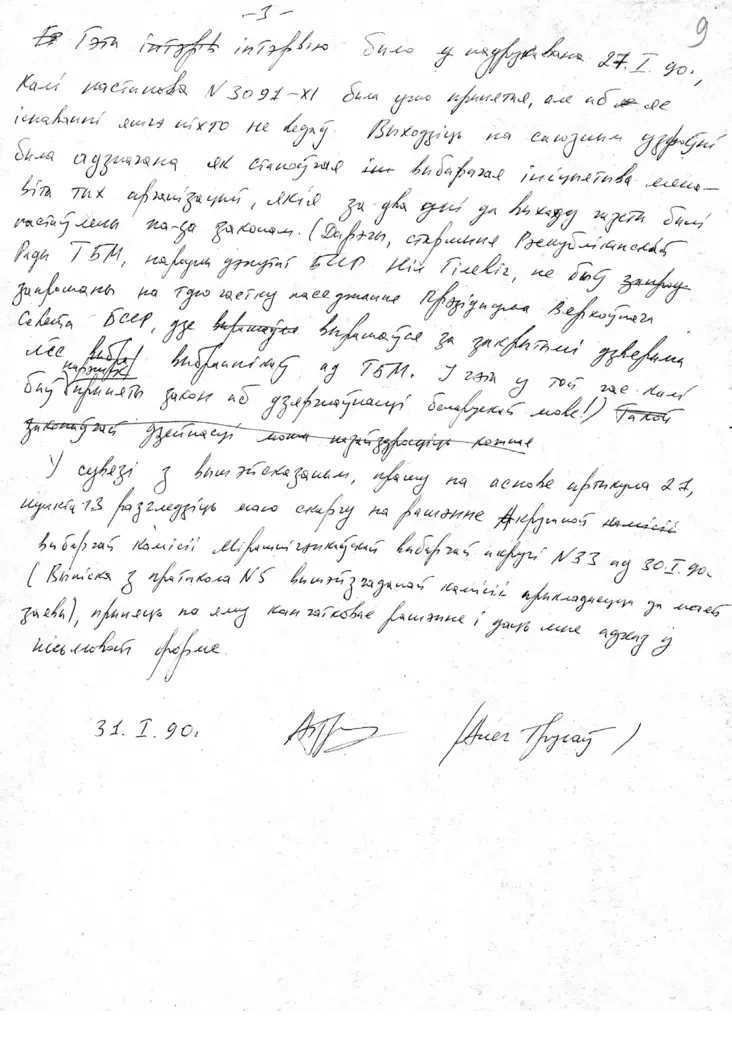 - 3 -
9
Гэта інтэрв інтэрвію было у надрукавана 27.I.90.,
Калі пастанова N 3091-XI была ужо принятая, але аб яе
існаванні яшчэ ніхто не ведаў. Выходзіць на саюзным узроўні
была адзначана як станоўчая выбарчая ініцыятыва мена-
віта тих арганізацый, якія за два дні да выхаду газеты былі
пастаўлены па-за законам. (Дарэчы, старшыня Рэспубліканскай
Рады ТБМ, народны дэпутат БССР Ніл Гілевіч, не быў запрош
запрошаны на тую частку паседжання Прэзідыума Вярхоўнага
Савета БССР, дзе вырашаўся вырашаўся за закрытымі дзвярыма
лёс выбра выбраннікаў ад ТБМ. І гэта у той час калі
быў приняты закон аб дзяржаўнасці беларускай мове!) Такой
законаўчай дзейнасці можа кожны
У сувязі з вышэйсказаным, прашу на аснове артыкула 27,
пункта 13 разгледзіць маю скаргу на рашэнне Акруговай камісіі
выбарчай камісіі выбарчай акругі N 33 ад 30.I.90.
(Выпіска з пратакола N 5 вышэйзгаданай камісіі прикладаецца да маёй
заявы), приняць па яму канчатковае рашэнне і даць мне адказ ў
пісьмовай форме.
31. I. 90. (Алег Трусаў)